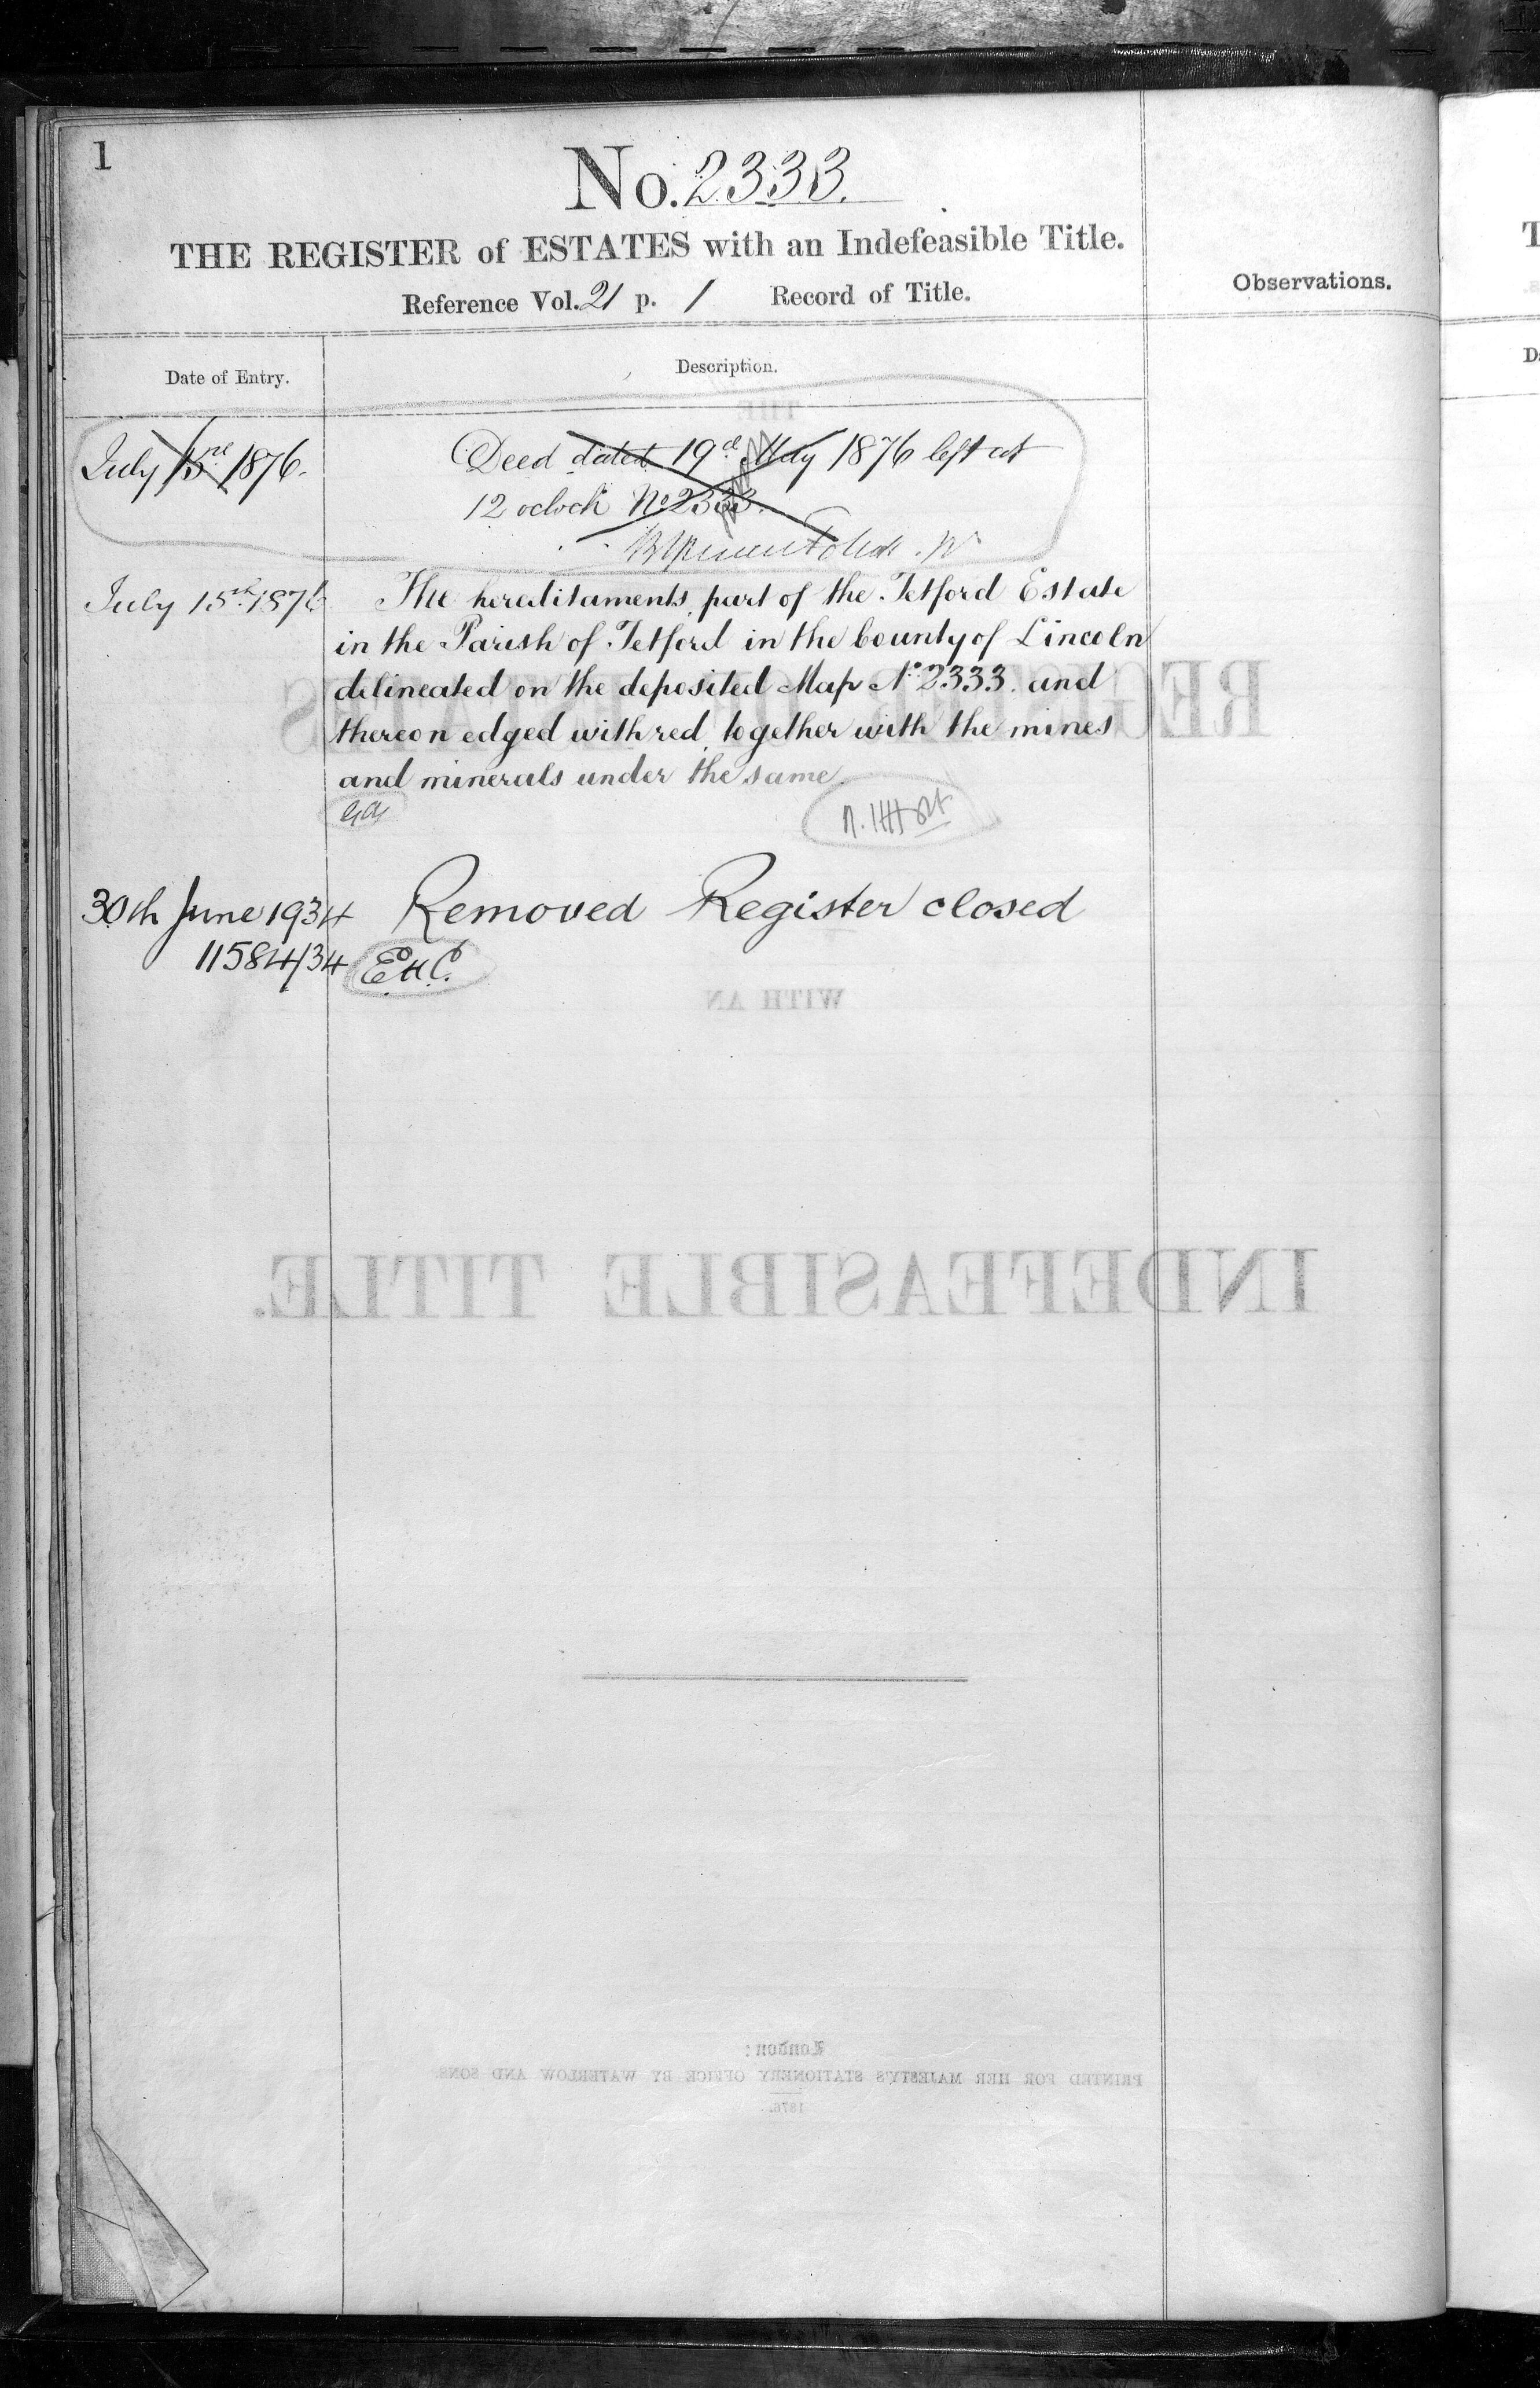 1
No. 2333.
THE REGISTER of ESTATES with an Indefeasible Title.
Reference Vol. 21 p. 1 Record of Title.
Observations.
Date of Entry.
Description.
July 1876. Deed dated 19d May 1876 left at
12 oclock No 2333.
July 15th 1876 The hereditaments part of the Tetford Estate
in the Parish of Tetford in the County of Lincoln
delineated on the deposited Map No 2333. and
thereon edged with red together with the mines
and minerals under the same.
30th June 1934 Removed Register closed
11584/34 E H C.
THE
REGISTER
WITH AN
INDEFEASIBLE TITLE.
London:
PRINTED FOR HER MAJESTY'S STATIONERY OFFICE BY WATERLOW AND SONS.
1876.